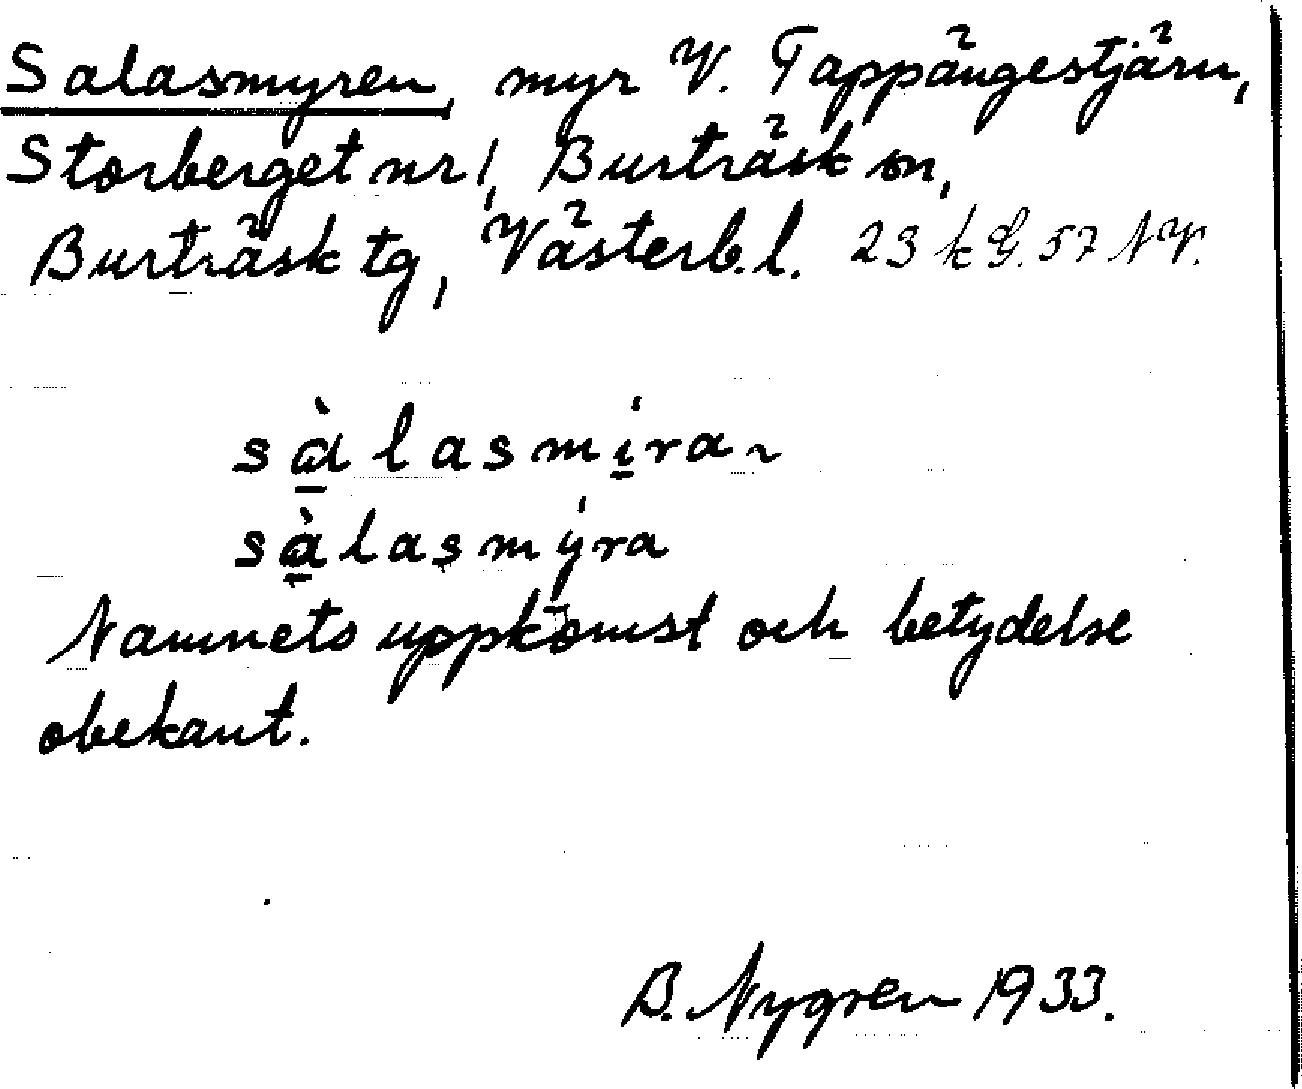 Salasmyren, myr V. Tappängestjärn,
Storberget nr 1, Burträsk sn,
Burträsk tg, Västerb.l. 23 k G. 57 NV.
sàlasmíra ~
sàlasmýra
Namnets uppkomst och betydelse
obekant.
B. Nygren 1933.